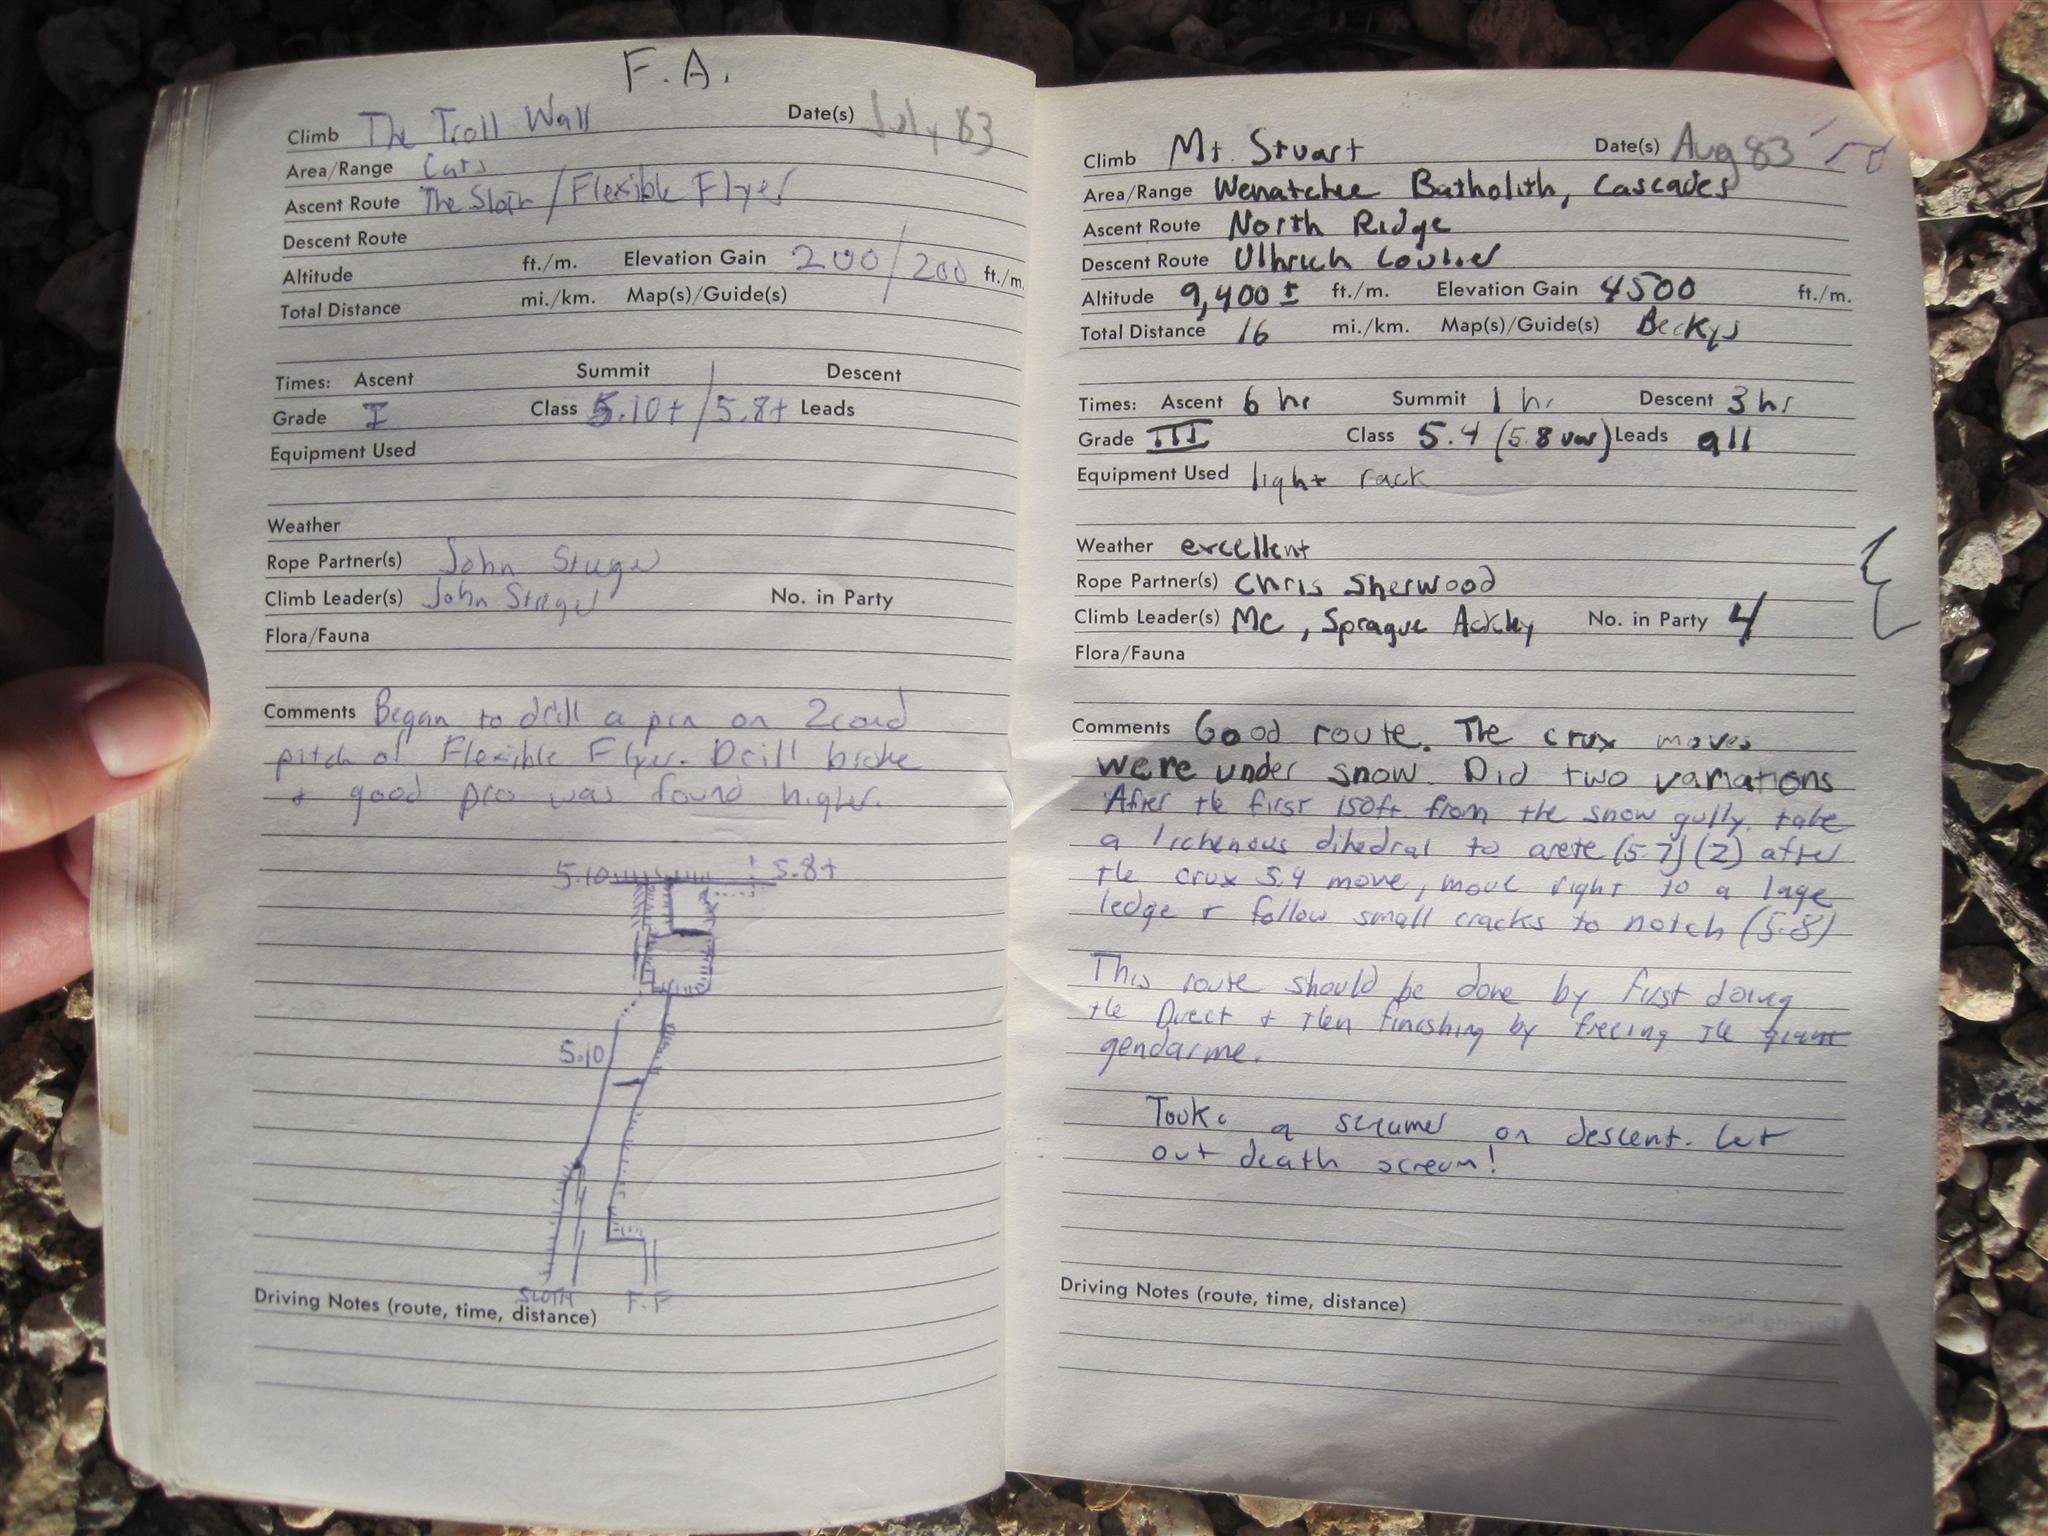 F.A.
Climb The Troll Wall Date(s) July 83
Area/Range Cats
Ascent Route The Sloth / Flexible Flyer
Descent Route
Altitude ft./m. Elevation Gain 200 / 200 ft./m.
Total Distance mi./km. Map(s)/Guide(s)
Times: Ascent Summit Descent
Grade I Class 5.10+ / 5.8+ Leads
Equipment Used
Weather
Rope Partner(s) John
Climb Leader(s) John
No. in Party
Flora/Fauna
Comments Began to drill a pin on 2cond
pitch of Flexible Flyer. Drill broke
+ good pro was found higher.
5.10 5.8+
5.10
SLOTH F.F
Driving Notes (route, time, distance)
Climb Mt. Stuart Date(s) Aug 83
Area/Range Wenatchee Batholith, Cascades
Ascent Route North Ridge
Descent Route Ulhrich Couлıer
Altitude 9,400 ± ft./m. Elevation Gain 4500 ft./m.
Total Distance 16 mi./km. Map(s)/Guide(s) Beckys
Times: Ascent 6 hr Summit 1 hr Descent 3 hr
Grade III Class 5.4 (5.8 var) Leads all
Equipment Used light rack
Weather excellent
Rope Partner(s) Chris Sherwood
Climb Leader(s) Me, Sprague Ackley No. in Party 4
Flora/Fauna
Comments Good route. The crux moves
were under snow. Did two variations
After the first 150ft. from the snow gully, take
a lichenous dihedral to arete (5.7) (2) after
the crux 5.4 move, move right to a lage
ledge + follow small cracks to notch (5.8)
This route should be done by first doing
the Direct + then finishing by freeing the giant
gendarme.
Took a screamer on descent. Let
out death scream!
Driving Notes (route, time, distance)